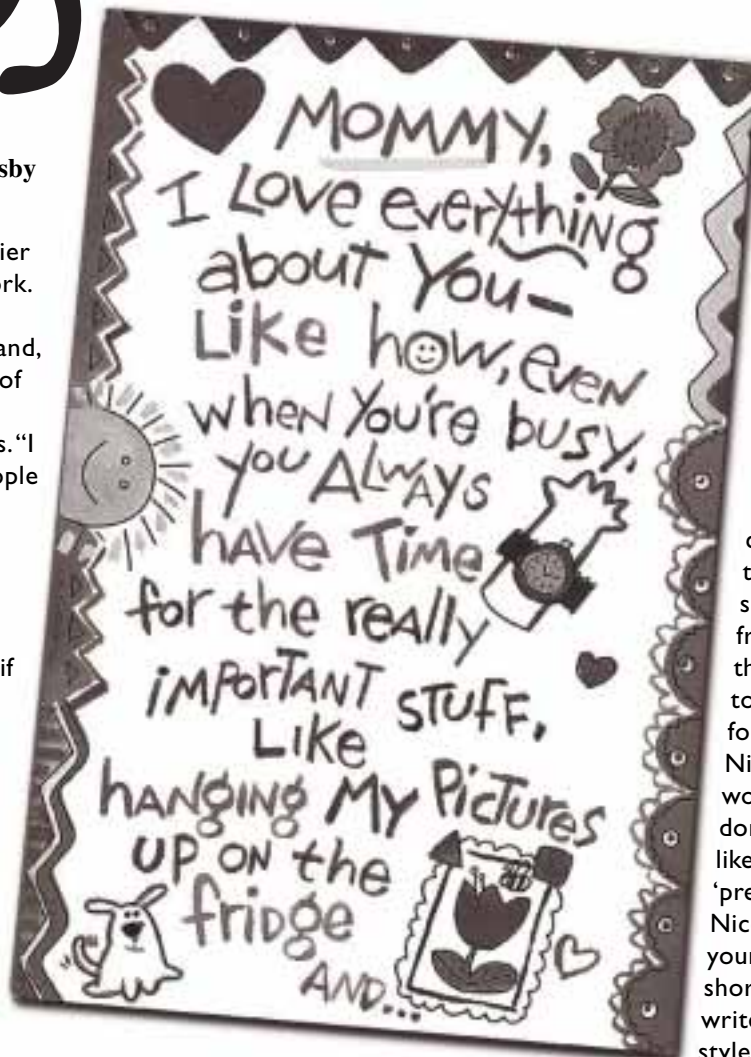 sby
ier
rk.
and,
of
s. “I
ople
if
MOMMY,
I Love everything
about You—
Like how, even
when You're busy,
you ALWAYS
hAVe Time
for the reAlly
iMPorTANT STUFF,
LiKe
hANgiNg My PicTures
UP ON the
friDge
AND...
t
s
fr
th
to
fo
Ni
wo
don
like
‘pre
Nic
your
shor
write
style